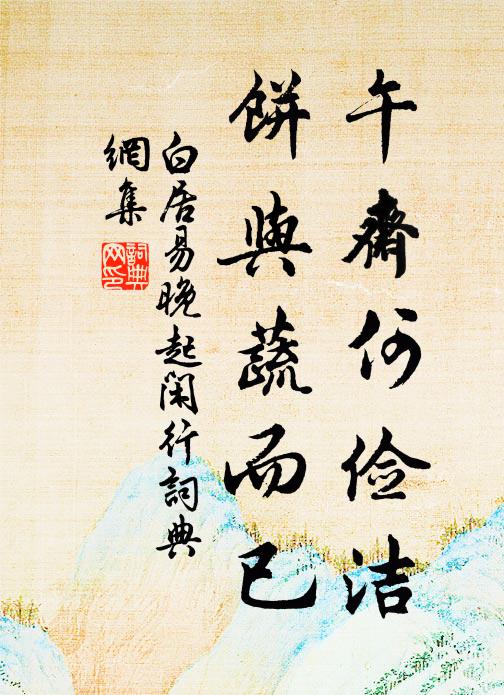 午齋何儉洁
餅與蔬而已
白居易晚起闲行詞典
網集
詞典
网印